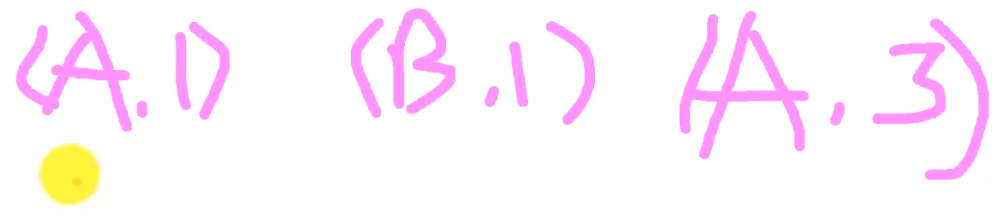 (A.1) (B.1) (A.3)